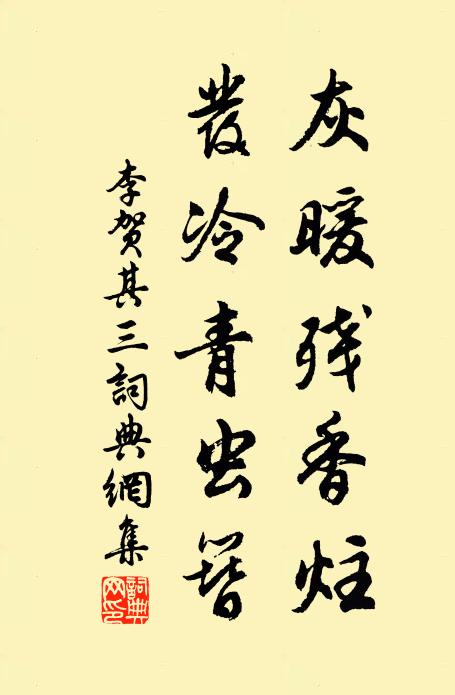 灰暖残香炷
發冷青虫簪
李贺其三詞典網集
詞典網印